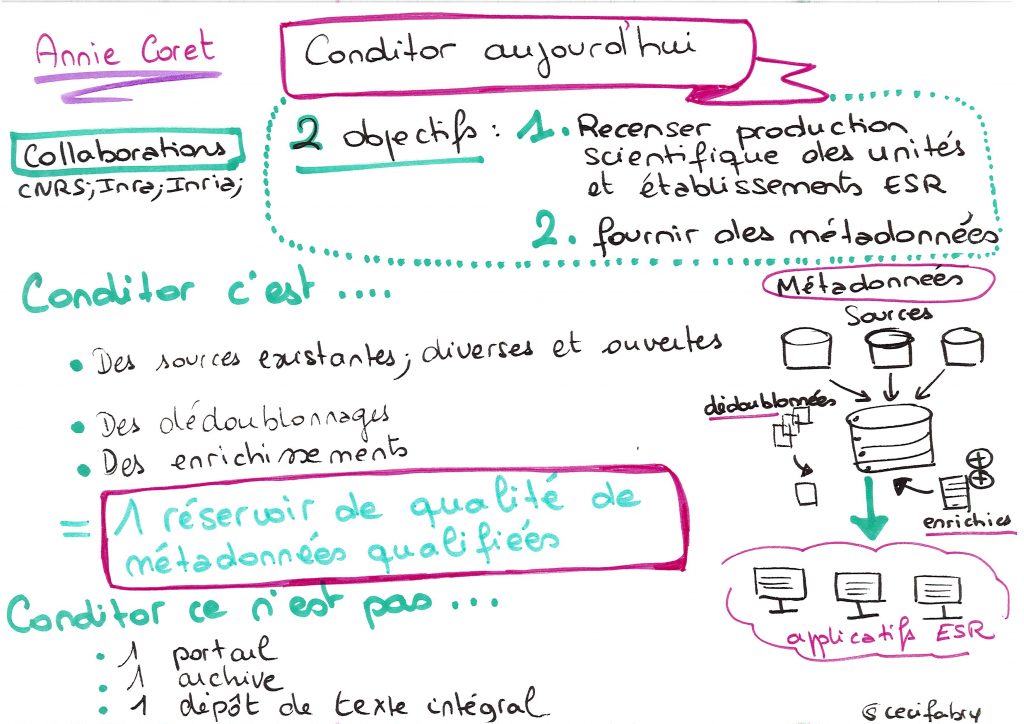 Annie Coret
Conditor aujourd'hui
Collaborations
CNRS; Inra; Inria;
2 objectifs : 1. Recenser production
scientifique des unités
et établissements ESR
2. fournir des métadonnées
Conditor c'est ....
• Des sources existantes, diverses et ouvertes
• Des dédoublonnages
• Des enrichissements
= 1 réservoir de qualité de
métadonnées qualifiées
Conditor ce n'est pas ...
• 1 portail
• 1 archive
• 1 dépôt de texte intégral
Métadonnées
Sources
dédoublonnées
enrichies
applicatifs ESR
@cecifabry